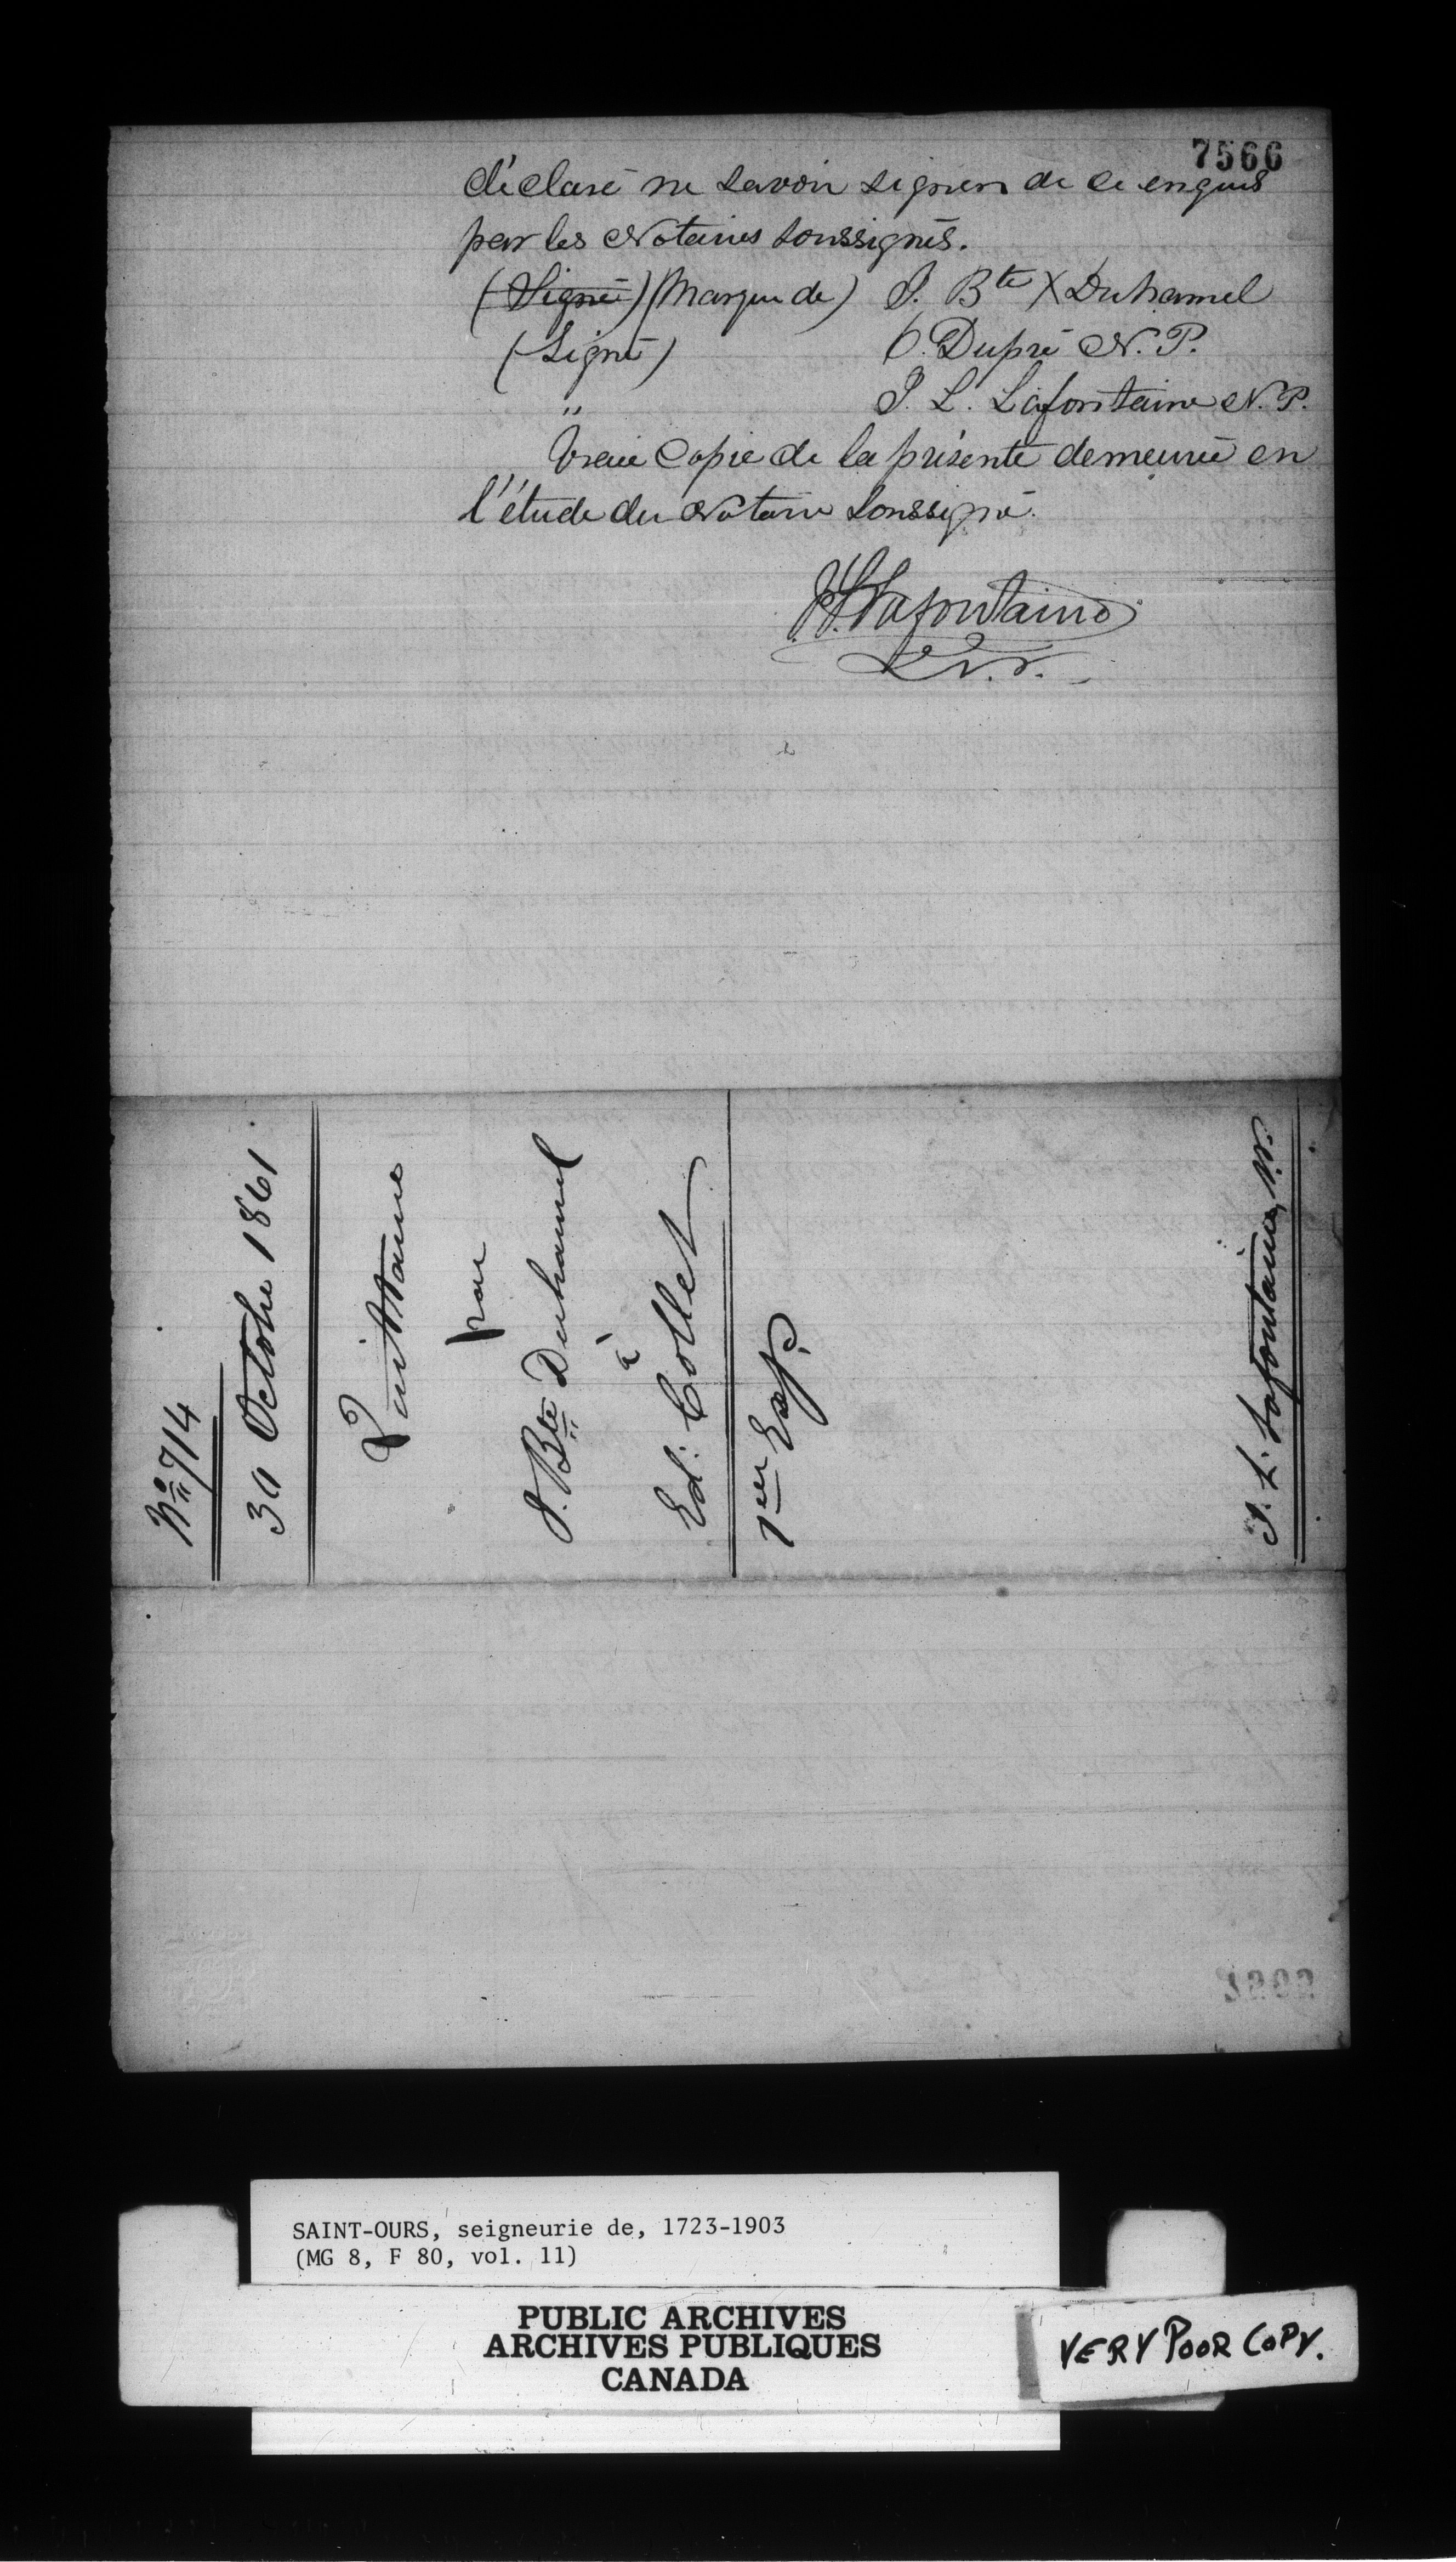 7566
déclaré ne savoir signer de ce enquis
par les Notaires soussignés.
(Signé) (Marque de) J. Bte X Duhamel
(Signé) O. Dupré N. P.
" J. L. Lafontaine N. P.
Vraie Copie de la présente demeurée en
l'étude du Notaire soussigné.
J L Lafontaine
N.P.
No 714
30 Octobre 1861
Quittance
par
J. Bte Duhamel
à
Ed: Collet
1ere Exp.
J. L. Lafontaine, N.P.
SAINT-OURS, seigneurie de, 1723-1903
(MG 8, F 80, vol. 11)
PUBLIC ARCHIVES
ARCHIVES PUBLIQUES
CANADA
VERY POOR COPY.